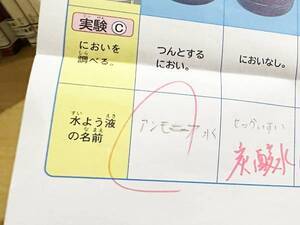 実験 C
においを
調べる。
つんとする
におい。
においなし。
すい えき
水よう液
なまえ
の名前
アンモニア水
せっかいすい
炭酸水